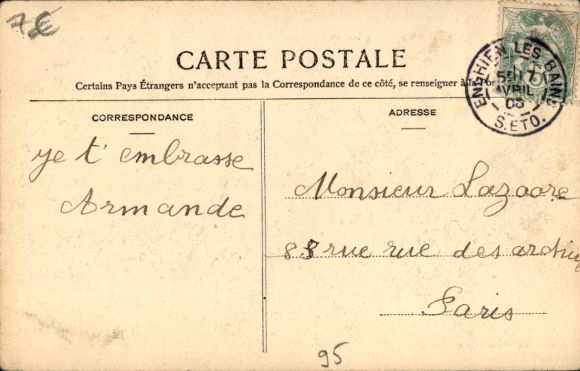 7€
CARTE POSTALE
Certains Pays Étrangers n'acceptant pas la Correspondance de ce côté, se renseigner à la
CORRESPONDANCE
ADRESSE
ENGHIEN LES BAINS
AVRIL
S. ET O.
Je t'embrasse
Armande
Monsieur Lazare
rue rue des
Paris
95